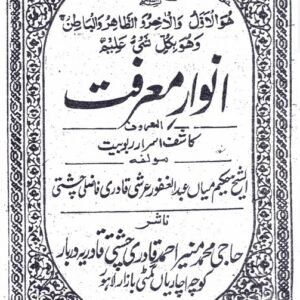 هُوَالْاَوَّلُ وَالْاٰخِرُ وَالظَّاهِرُ وَالْبَاطِنُ
وَهُوَ بِكُلِّ شَیْءٍ عَلِیْمٌ
انوارِ معرفت
المعروف
کاشف اسرارِ ربوبیت
مولفہ
الشیخ حکیم میاں عبدالغفور عرشی قادری فاضلی چشتی
ناشر
حاجی محمد منیر احمد قادری چشتی قادریہ دربار
کوچہ اچاریاں گمٹی بازار لاہور